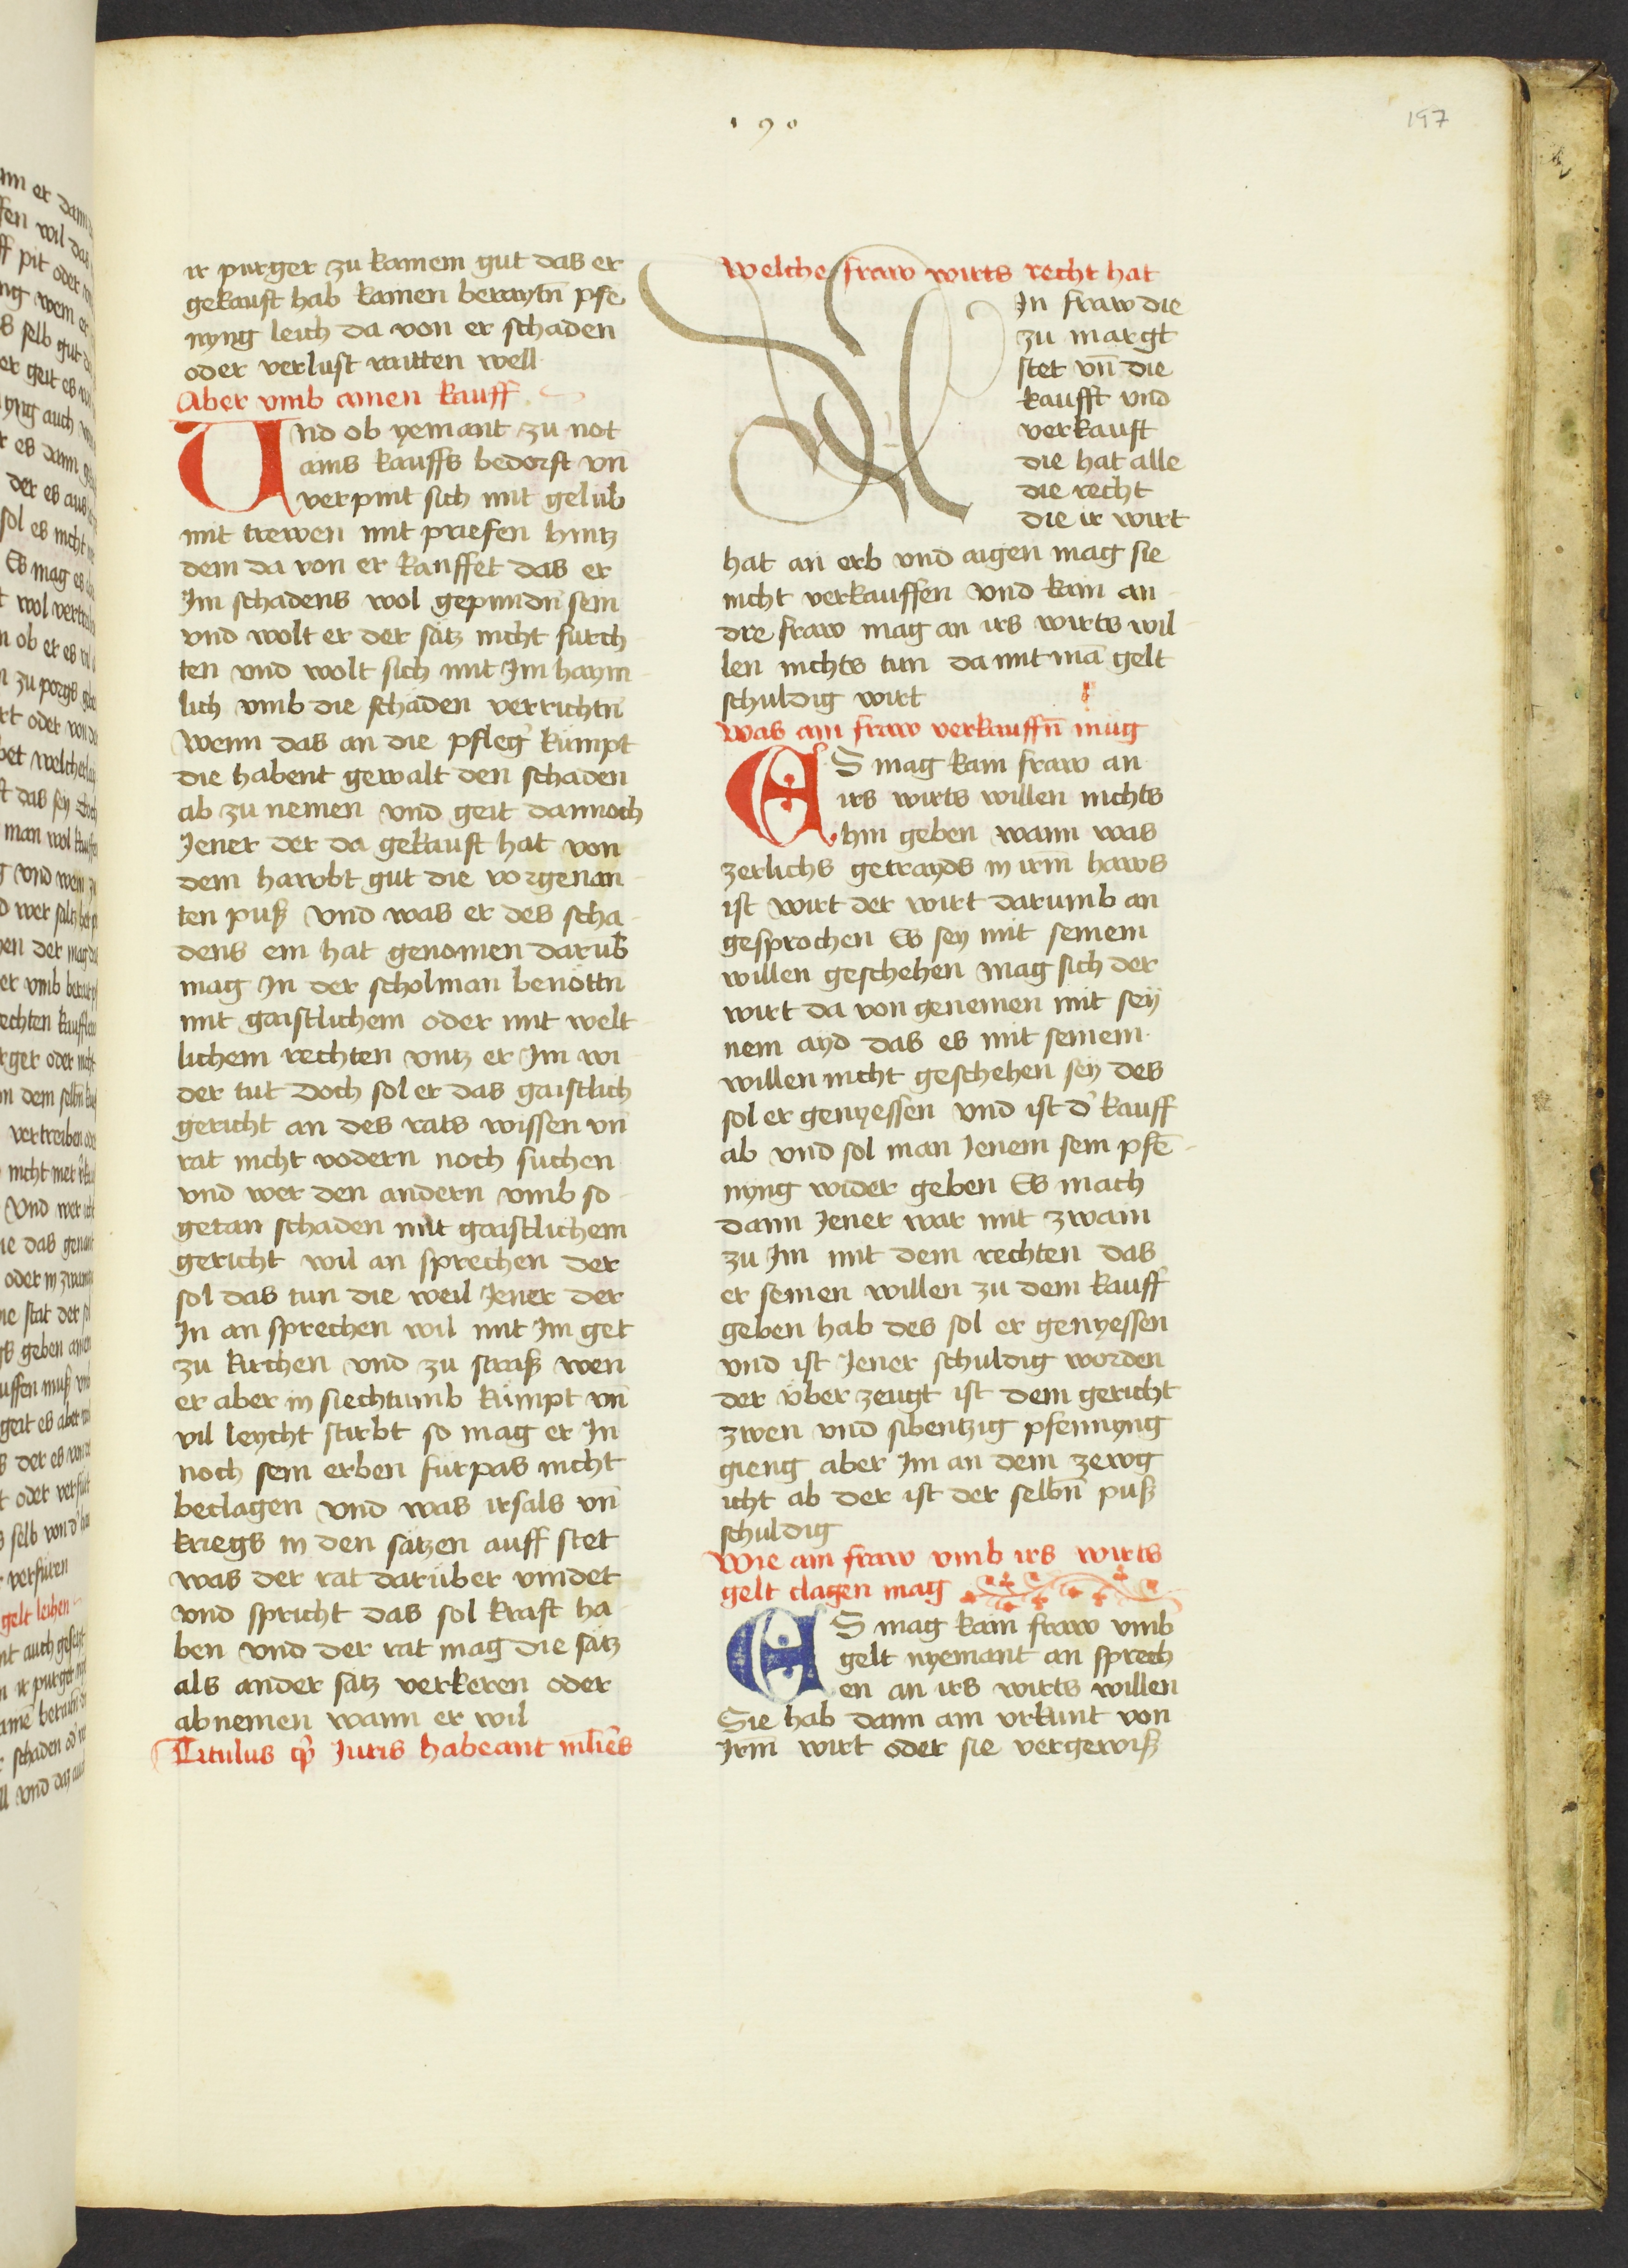 190
197
ir purger zu kainem gut das er
gekauft hab kainen beraytn̄ pfe
nyng leich da von er schaden
oder verlust raitten well
Aber vmb ainen kauff
Vnd ob yemant zu not
ains kauffs bedorft vn̄
verpint sich mit gelub
mit trewen mit priefen hintz
dem da von er kauffet das er
Im schadens wol gepundn̄ sein
vnd wolt er der sätz nicht fürch
ten vnd wolt sich mit Im haym
lich vmb die schäden verrichtn̄
Wenn das an die pfleg' kumpt
die habent gewalt den schaden
ab zu nemen vnd geit dannoch
Jener der da gekauft hat von
dem hawbt gut die vorgenan
ten puß vnd was er des scha
dens ein hat genomen darüb
mag In der scholman benöttn̄
mit gaistlichem oder mit welt
lichem rechten vntz er Im wi
der tut Doch sol er das gaistlich
gericht an des rats wissen vn̄
rat nicht vodern noch suchen
vnd wer den andern vmb so
getan schaden mit gaistlichem
gericht wil an sprechen der
sol das tun die weil Jener der
In an sprechen wil mit Im get
zu kirchen vnd zu straß wen
er aber in siechtumb kumpt vn̄
vil leycht stirbt so mag er In
noch sein erben fürpas nicht
beclagen vnd was irsals vn̄
kriegs in den sätzen auff stet
was der rat darüber vindet
vnd spricht das sol kraft ha
ben vnd der rat mag die sätz
als ander sätz verkeren oder
abnemen wann er wil
Titulus qp̄ Juris habeant ml̄ies
Welche fraw wirts recht hat
In fraw die
zu margt
stet vn̄ die
kaufft vnd
verkauft
die hat alle
die recht
die ir wirt
hat an erb vnd aigen mag sie
nicht verkauffen vnd kain an
dre fraw mag an irs wirts wil
len nichts tun da mit mā gelt
schuldig wirt
Was ain fraw verkauffn̄ müg
ES mag kain fraw an
irs wirts willen nichts
hin geben wann was
zerlichs getrayds in irm haws
ist wirt der wirt darumb an
gesprochen Es sey mit seinem
willen geschehen mag sich der
wirt da von genemen mit sey
nem ayd das es mit seinem
willen nicht geschehen sey des
sol er genyessen vnd ist d' kauff
ab vnd sol man Jenem sein pfē
nyng wider geben Es mach
dann Jener war mit zwain
zu Im mit dem rechten das
er seinen willen zu dem kauff
geben hab des sol er genyessen
vnd ist Jener schuldig worden
der über zeugt ist dem gericht
zwen vnd sibentzig pfennyng
gieng aber Im an dem zewg
icht ab der ist der selbn̄ puß
schuldig
Wie ain fraw vmb irs wirts
gelt clagen mag
ES mag kain fraw vmb
gelt nyemant an sprech
en an irs wirts willen
Sie hab dann ain vrkunt von
Irm wirt oder sie vergewiß